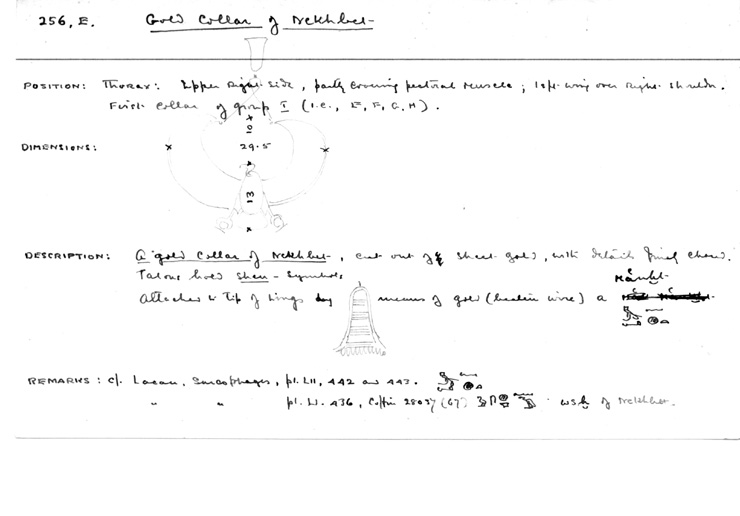 256, E. Gold Collar of Nekhbet
POSITION: Thorax: Upper right side, partly covering pectoral muscle; left wing over right shoulder.
First collar of group I (i.e., E, F, G, H).
10
DIMENSIONS: 29.5
13
DESCRIPTION: A gold Collar of Nekhbet, cut out of sheet gold, with details finely chased.
Talons hold shen-symbols
Attached to tip of wings by means of gold (beaten wire) a
REMARKS: cf. Lacau, Sarcophages, pl. LII, 442 and 443.
" " pl. LI. 436, Coffin 28037 (67) wsḫ of Nekhbet.